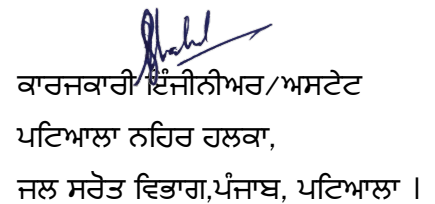 ਕਾਰਜਕਾਰੀ ਇੰਜੀਨੀਅਰ/ਅਸਟੇਟ
ਪਟਿਆਲਾ ਨਹਿਰ ਹਲਕਾ,
ਜਲ ਸਰੋਤ ਵਿਭਾਗ,ਪੰਜਾਬ, ਪਟਿਆਲਾ |